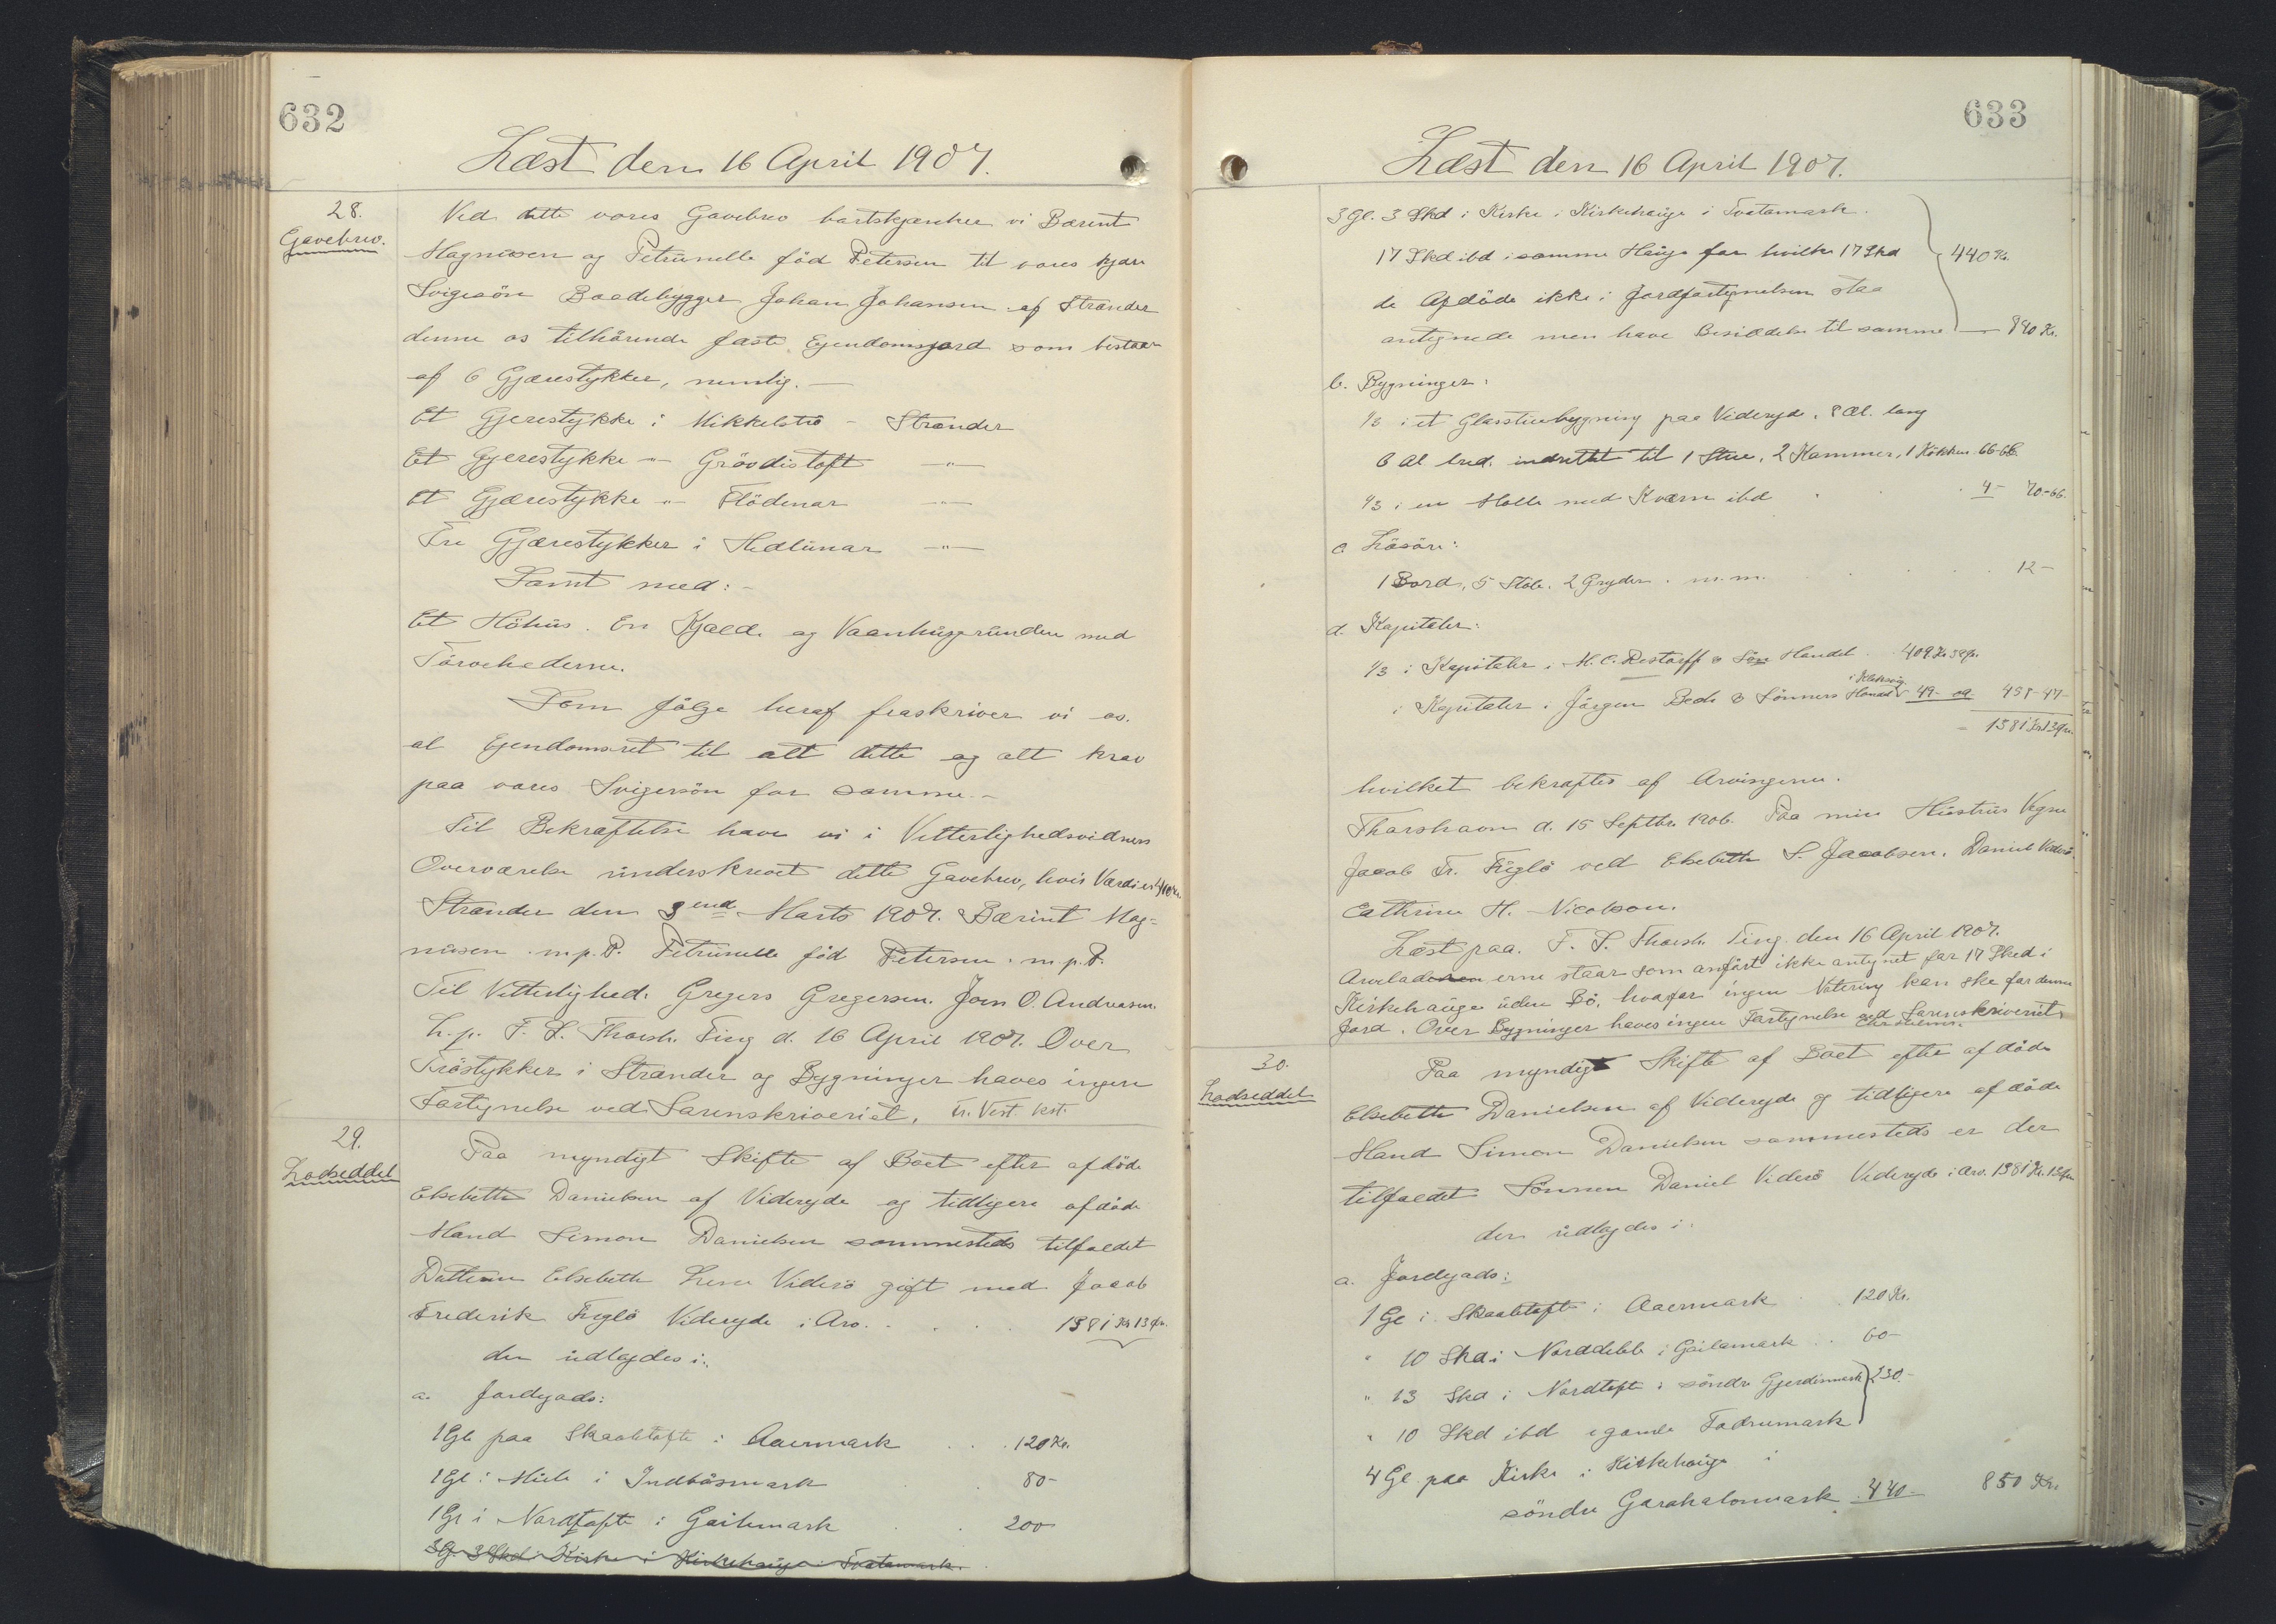 632
Læst den 16 April 1907.
28.
Gavebrev.
Ved dette vores Gavebrev bortskjænker vi Bærint
Magnusen og Petrunelle föd Petersen til vores kjære
Svigesön Baadebygger Johan Johansen af Strænder
denne os tilhörende faste Ejendomsjord som bestaar
af 6 Gjærestykker, nemlig. —
Et Gjerestykke i Mikkelströ - Strænder
Et Gjerestykke -"- Grövdistoft -"-
Et Gjærestykke -"- Flödenar -"-
Tre Gjærestykker i Hedlünar -"-
Samt med: -
Et Höhüs. En Kjæld. og Vaanhüsgründen med
Törvehederne.
Som fölge heraf fraskriver vi os.
al Ejendomsret til alt dette og alt krav
paa vores Svigersön for samme. -
Til Bekræftelse have vi i Vitterlighedsvidners
Overværelse ünderskrevet dette Gavebrev, hvis Værdi er 400 Kr.
Strænder den 3end Marts 1907. Bærint Mag=
nüsen. m.p.P. Petrünelle föd Petersen. m.p.P.
Til Vitterlighed. Gregers Gregersen. Joen O. Andreasen.
L. p. F. S. Thorsh. Ting d. 16 April 1907. Over
Tröstykker i Strænder og Bygninger haves ingen
Fortegnelse ved Sorenskriveriet. Fr. Vest kst.
29.
Lodseddel
Paa myndigt Skifte af Boet efter afdöde
Elsebeth Danielsen af Videreyde og tidligere afdöde
Mand Simon Danielsen sammesteds tilfaldet
Datteren Elsebeth Lena Viderö gift med Jacob
Frederik Fuglö Videreyde i Arv. . . . . 1381 Kr 13 Ør.
der udlagdes i:
a. Jordegods:
1 Gl. paa Skaaletofte i Aaermark . . . 120 Kr.
1 Gl. i Müle i Indbösmark . . 80-
1 Gl i Nordtofte i Gailemark . . 200
3 G. 3 Skd i Kirke i Kirkehauge i Tvatamark.
633
Læst den 16 April 1907.
3 Gl. 3 Skd i Kirke i Kirkehauge i Tvatamark.
17 Skd ibd i samme Haüge for hvilke 17 Skd 440 Kr.
de Afdöde ikke i Jordfortegnelsen staa
antegnede men have Besiddelse til samme — 840 Kr.
b. Bygninger:
1/3 i et Glasstuebygning paa Videreyde. 8 Al. lang
6 Al bred. indrettet til 1 Stue, 2 Kammer, 1 Kökken 66-66.
1/3 i en Mölle med Kværn ibd . . . 4- 70-66.
c Lösöre:
1 Bord, 5 Stole. 2 Gryder. m.m. . . . . 12-
d. Kapitaler:
1/3 i Kapitaler i M. C. Restorff & Söns Handel . 409 Kr 38 Ør.
i Klaksvig.
i Kapitaler i Jörgen Bech & Sönners Handel 49- 09 458-47-
- 1381 Kr 13 Ør.
hvilket bekræftes af Arvingerne.
Thorshavn d. 15 Septbr. 1906. Paa min Hüstrüs Vegne
Jacob Fr. Füglö ved Elsebeth S. Jacobsen. Daniel Viderö.
Cathrine H. Nicolson.
Læst paa. F. S. Thorsh. Ting. den 16 April 1907.
Arvelad erne staar som anfört ikke antegnet for 17 Skd i
Kirkehaüge üden Bö, hvorfor ingen Notering kan ske for denne
Jord. Over Bygninger haves ingen Fortegnelse ved Sorenskriveriet.
30.
Lodseddel
Paa myndigt Skifte af Boet efter afdöde
Elsebeth Danielsen af Videreyde og tidligere afdöde
Mand Simon Danielsen sammesteds er der
tilfaldet Sönnen Daniel Viderö Videreyde i Arv. 1381 Kr. 13 Ør
der üdlagdes i.
a. Jordegods:
1 Gl i Skaaletofte i Aaermark . . 120 Kr.
" 10 Skd i Norddebb i Gailamark . . 60-
" 13 Skd i Nordtofte i söndre Gjerdismark 230.-
" 10 Skd ibd i gamle Todnumark
4 Gl. paa Kirke i Kirkehaüge i
söndre Garahalomark . 440- 850 Kr.